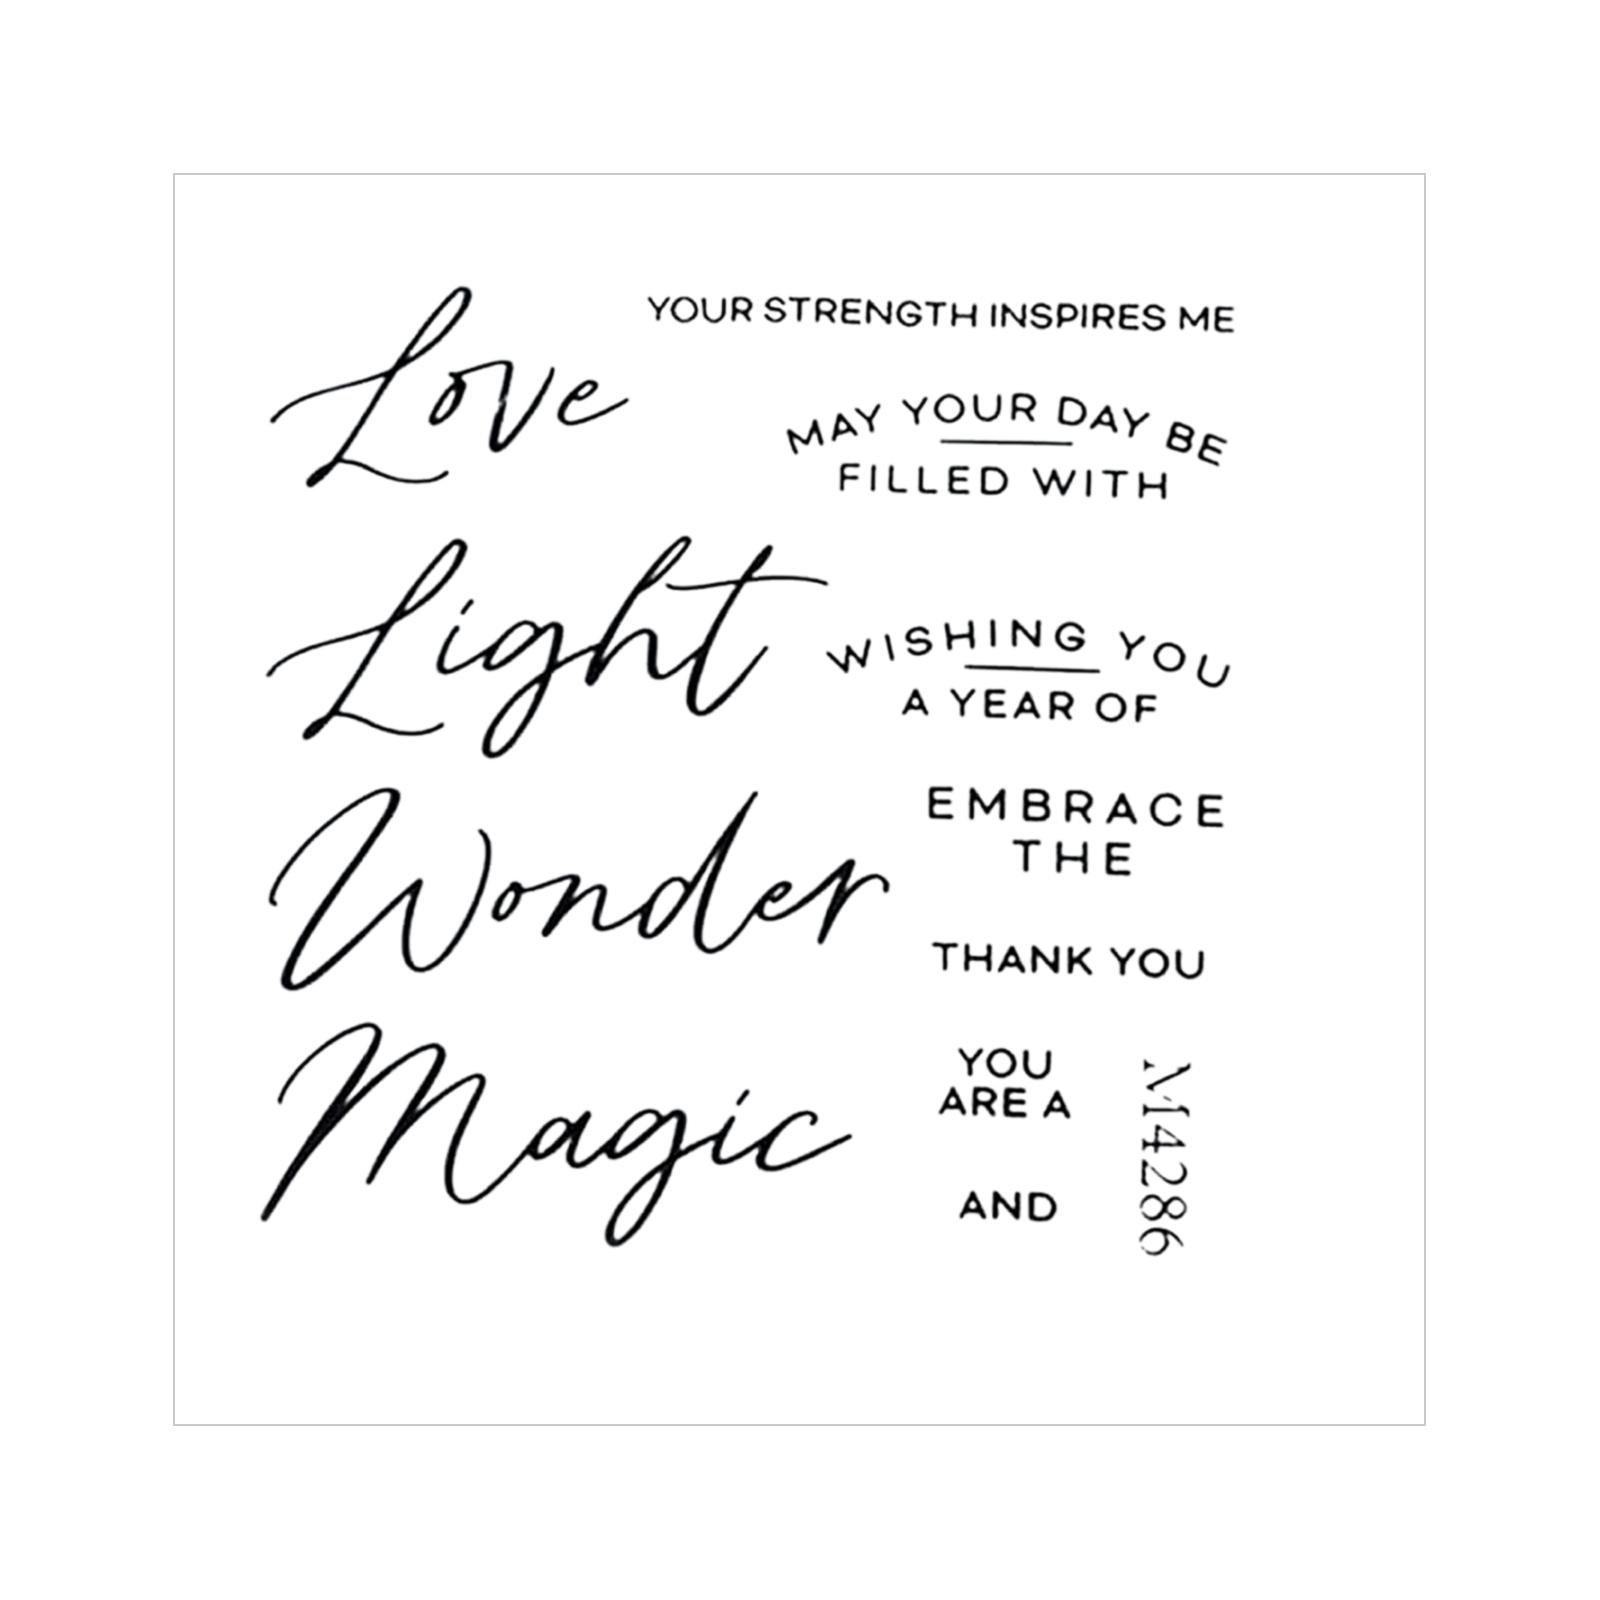 Love
YOUR STRENGTH INSPIRES ME
MAY YOUR DAY BE
FILLED WITH
Light
WISHING YOU
A YEAR OF
Wonder
EMBRACE
THE
THANK YOU
Magic
YOU
ARE A
AND
M4286